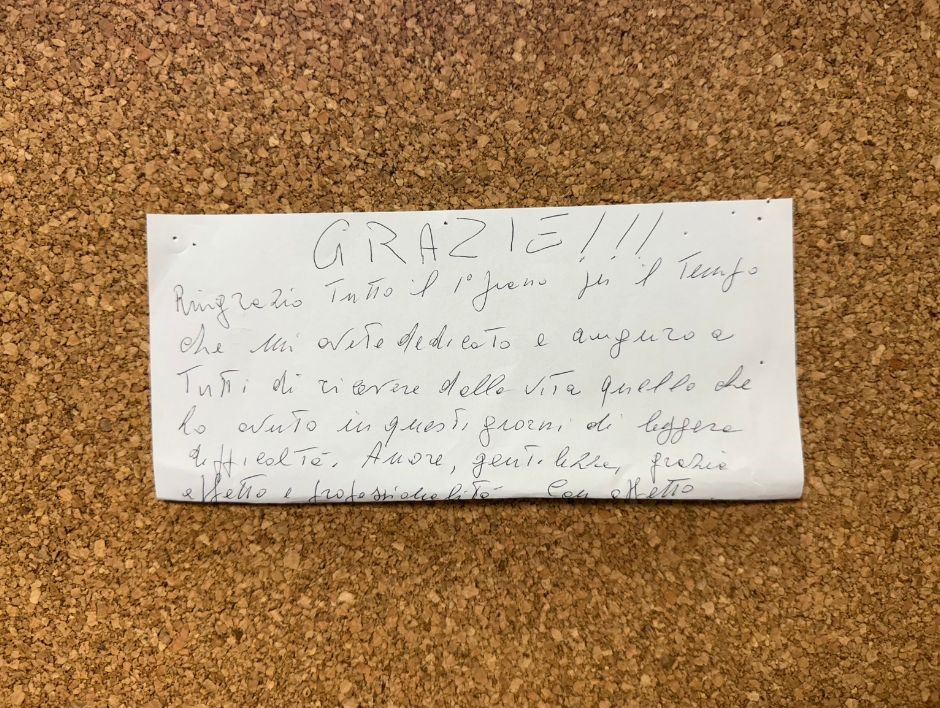 GRAZIE!!!
Ringrazio tutto il 1° piano per il tempo
che mi avete dedicato e auguro a
tutti di ricevere dalla vita quello che
ho avuto in questi giorni di leggera
difficoltà. Amore, gentilezza, grazia
affetto e professionalità. Con affetto